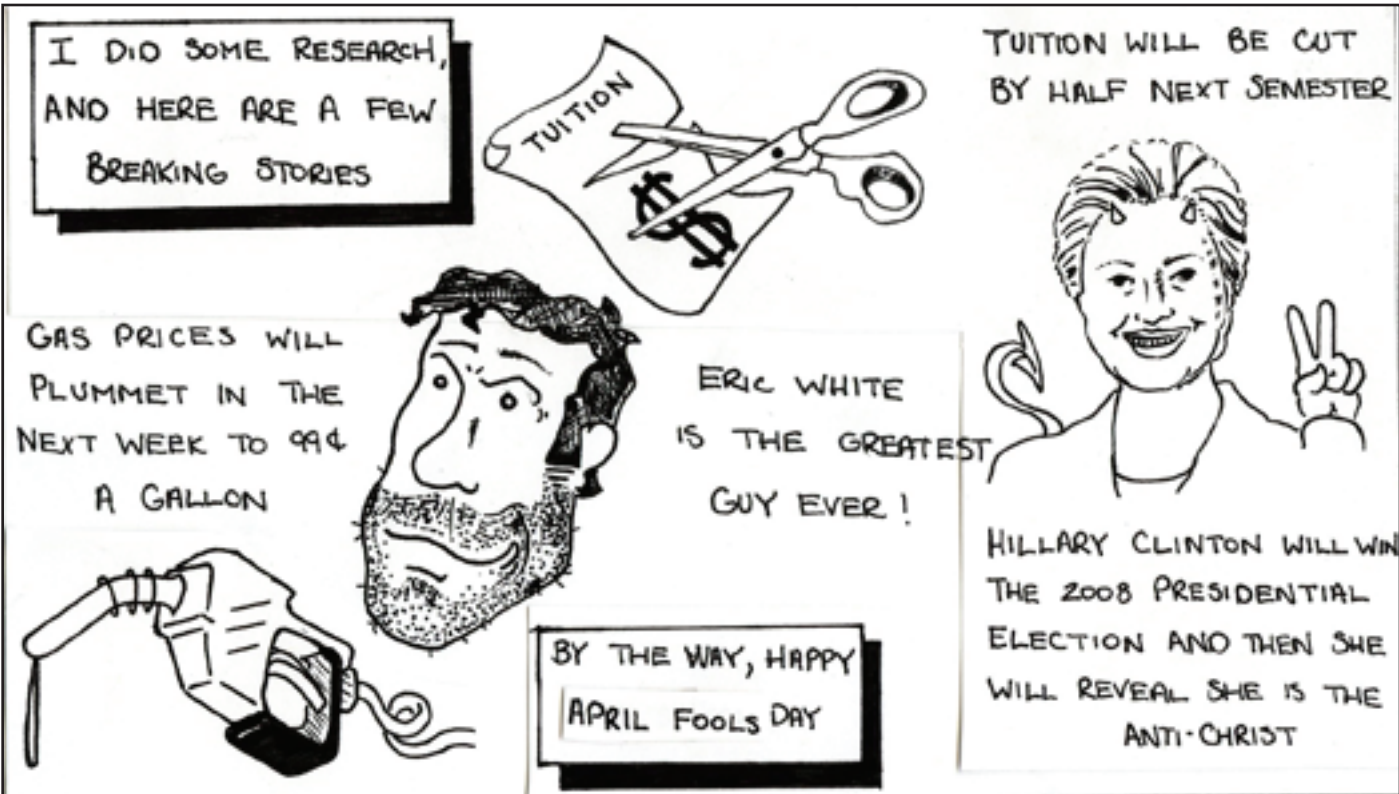 I DID SOME RESEARCH,
AND HERE ARE A FEW
BREAKING STORIES
TUITION
$
TUITION WILL BE CUT
BY HALF NEXT SEMESTER
GAS PRICES WILL
PLUMMET IN THE
NEXT WEEK TO 99¢
A GALLON
ERIC WHITE
IS THE GREATEST
GUY EVER!
HILLARY CLINTON WILL WIN
THE 2008 PRESIDENTIAL
ELECTION AND THEN SHE
WILL REVEAL SHE IS THE
ANTI-CHRIST
BY THE WAY, HAPPY
APRIL FOOLS DAY